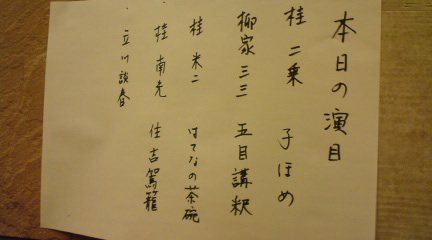 本日の演目
桂 二乗 子ほめ
柳家 三三 五目講釈
桂 米二 はてなの茶碗
桂 南光 住吉駕籠
立川談春